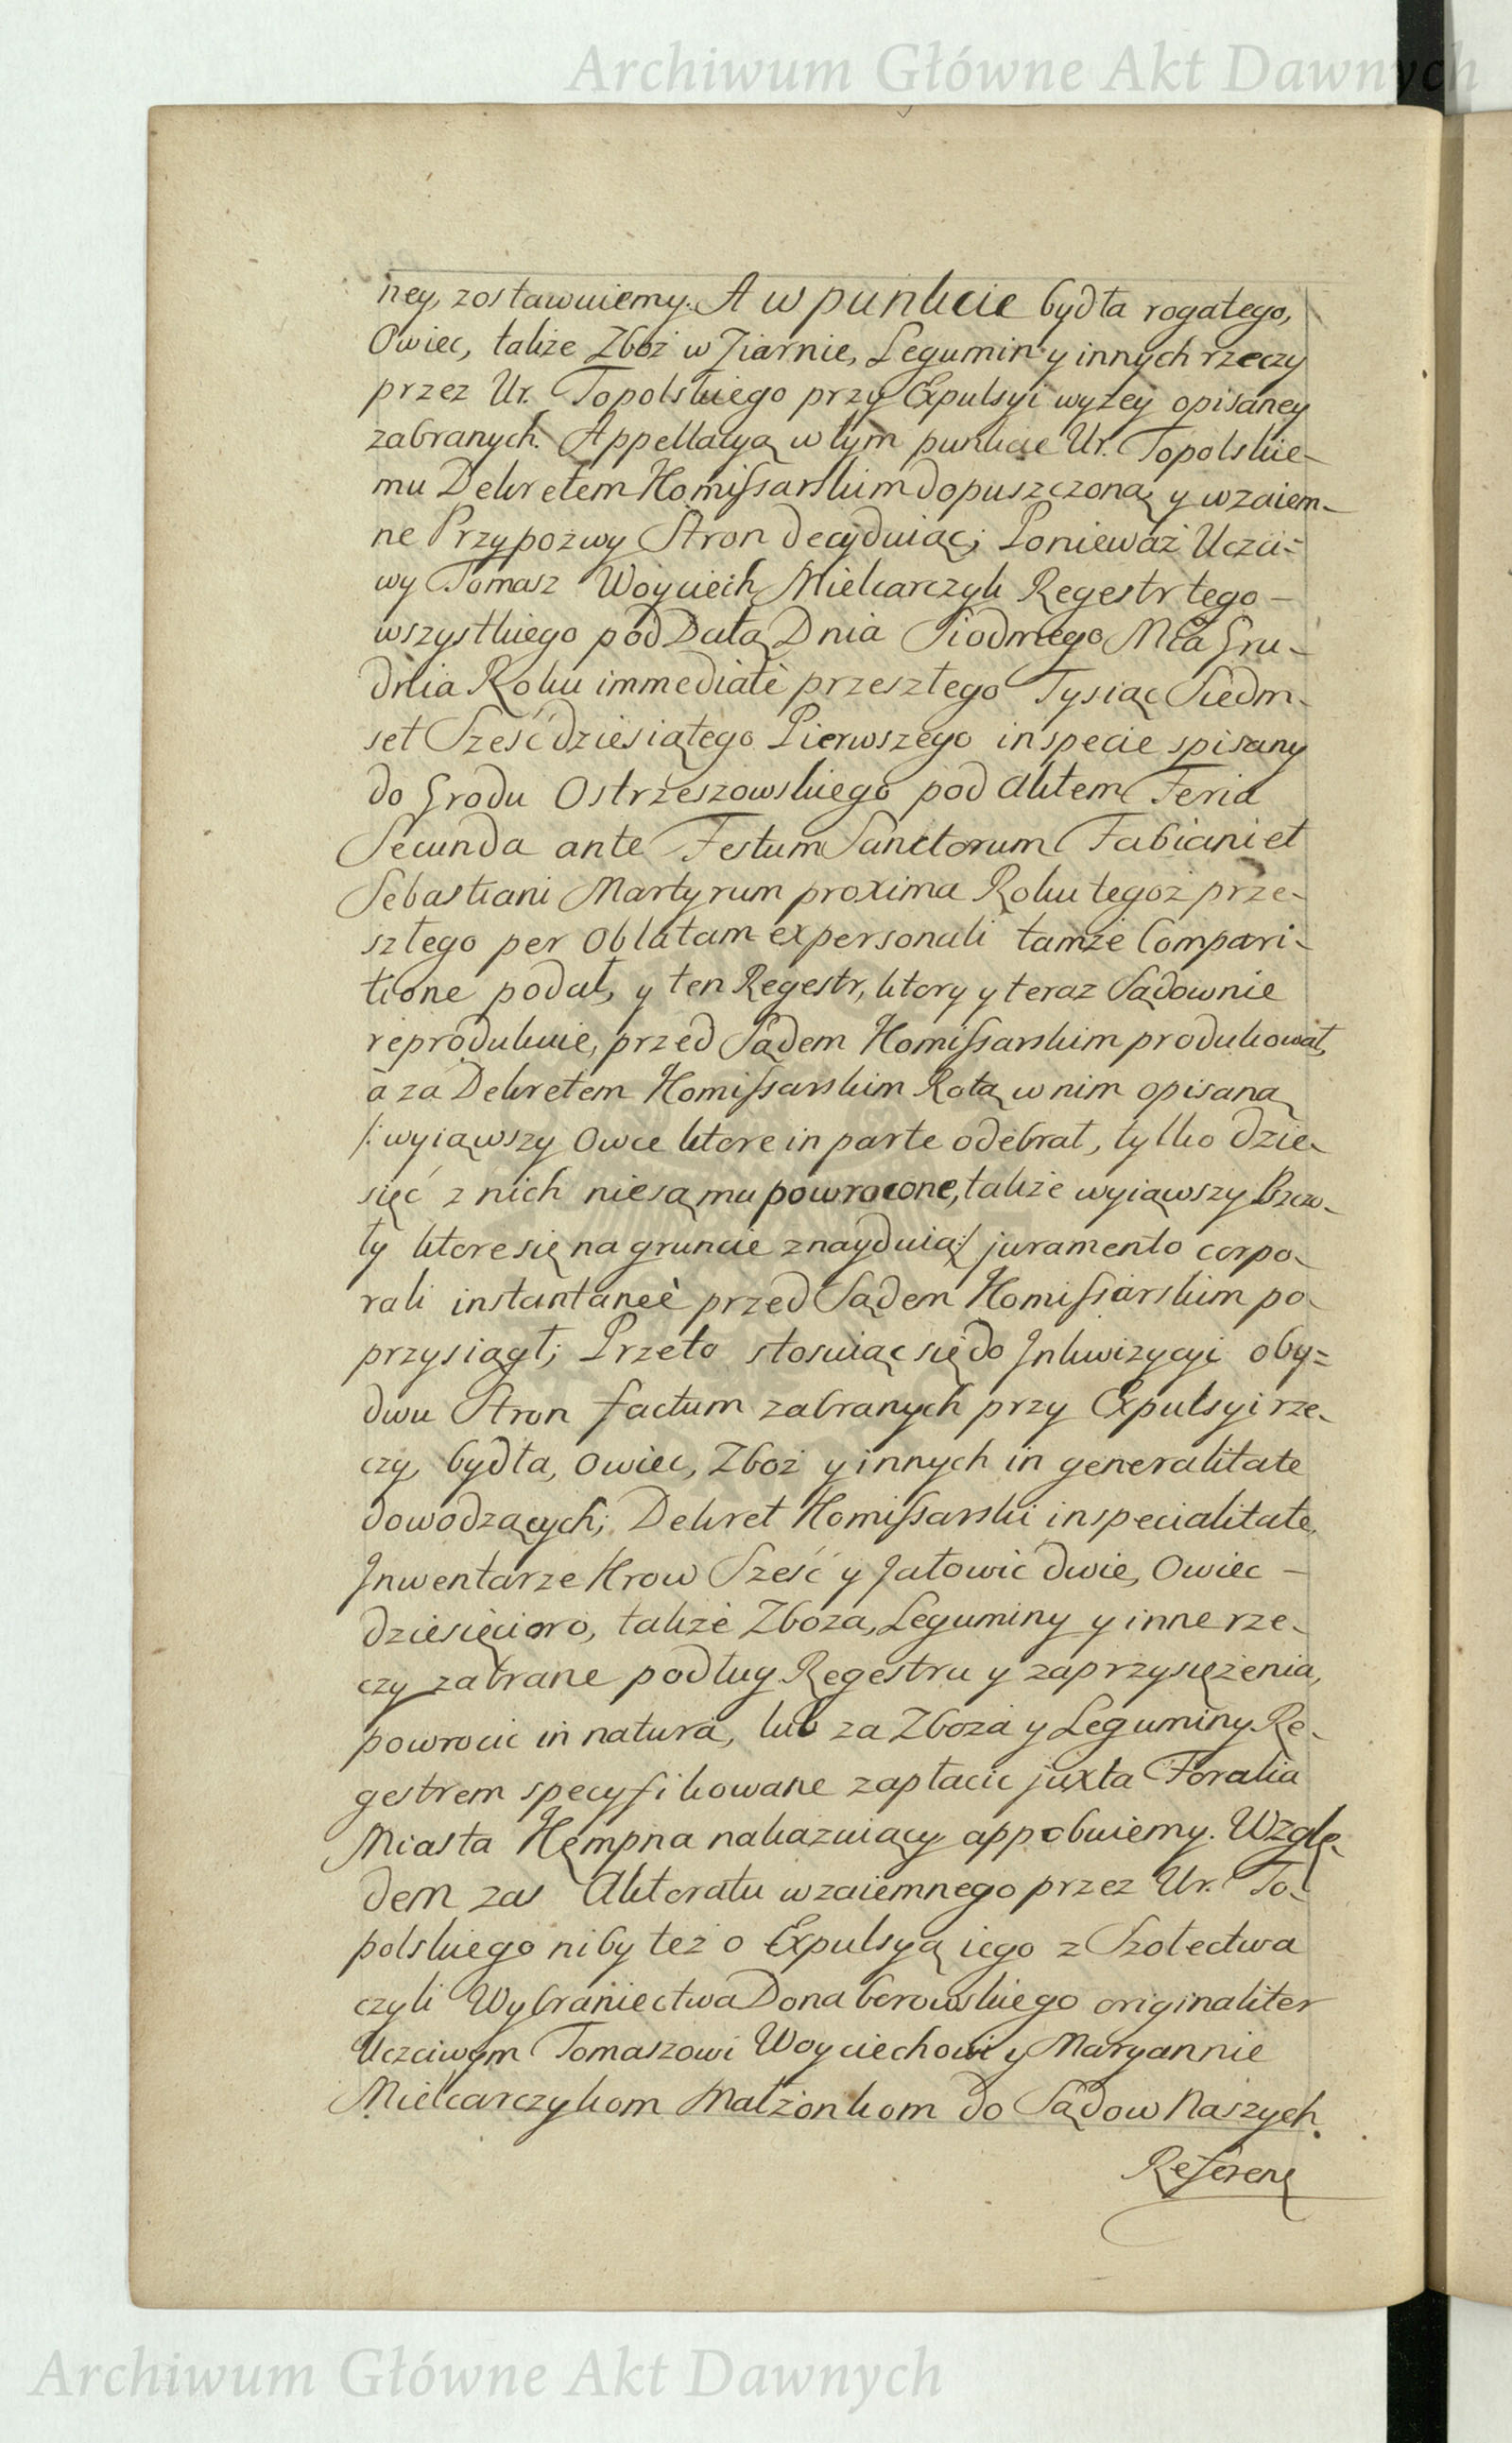 Archiwum Główne Akt Dawnych
ney, zostawuiemy. A w punkcie bydła rogatego,
Owiec, także Zboż w Ziarnie, Legumin y innych rzeczy
przez Ur. Topolskiego przy Expulsyi wyżey opisaney
zabranych. Appellacyą w tym punkcie Ur. Topolskie-
mu Dekretem Kommissarskim dopuszczoną y wzaiem-
ne Przypozwy Stron decyduiąc; Ponieważ Uczci=
wy Tomasz Woyciech Mielcarczyk Regestr tego –
wszystkiego pod Datą Dnia Siodmego Mca Gru-
dnia Roku immediatè przeszłego Tysiąc Siedm-
set Sześćdziesiątego Pierwszego in specie spisany
do Grodu Ostrzeszowskiego pod Aktem Feria
Secunda ante Festum Sanctorum Fabiani et
Sebastiani Martyrum proxima Roku tegoż prze-
szłego per Oblatam ex personali tamże Compari-
tione podał, y ten Regestr, ktory y teraz Sądownie
reprodukuie, przed Sądem Komissarskim produkował,
à za Dekretem Komissarskim Rotą w nim opisaną
/: wyiąwszy Owce ktore in parte odebrał, tylko dzie-
sięć z nich niesą mu powrocone, także wyiąwszy Pszczo-
ły ktore się na gruncie znayduią :/ juramento corpo-
rali instantaneè przed Sądem Komissarskim po-
przysiągł; Przeto stosuiąc się do Inkwizycyi oby=
dwu Stron factum zabranych przy Expulsyi rze-
czy, bydła, owiec, Zboż y innych in generalitate
dowodzących; Dekret Komissarski in specialitate,
Inwentarze Krow Sześć y Jałowic dwie, Owiec –
dziesięcioro, także Zboza, Leguminy y inne rze-
czy zabrane podług Regestru y zaprzysiężenia,
powrocic in natura, lub za Zboza y Leguminy Re-
gestrem specyfikowane zapłacic juxta Foralia
Miasta Kempna nakazuiący approbuiemy. Wzglę-
dem zas Aktoratu wzaiemnego przez Ur. To-
polskiego niby też o Expulsyą iego z Szołectwa
czyli Wybraniectwa Donaborowskiego originaliter
Uczciwym Tomaszowi Woyciechowi y Maryannie
Mielcarczykom Małżonkom do Sądow Naszych
Referen
Archiwum Główne Akt Dawnych